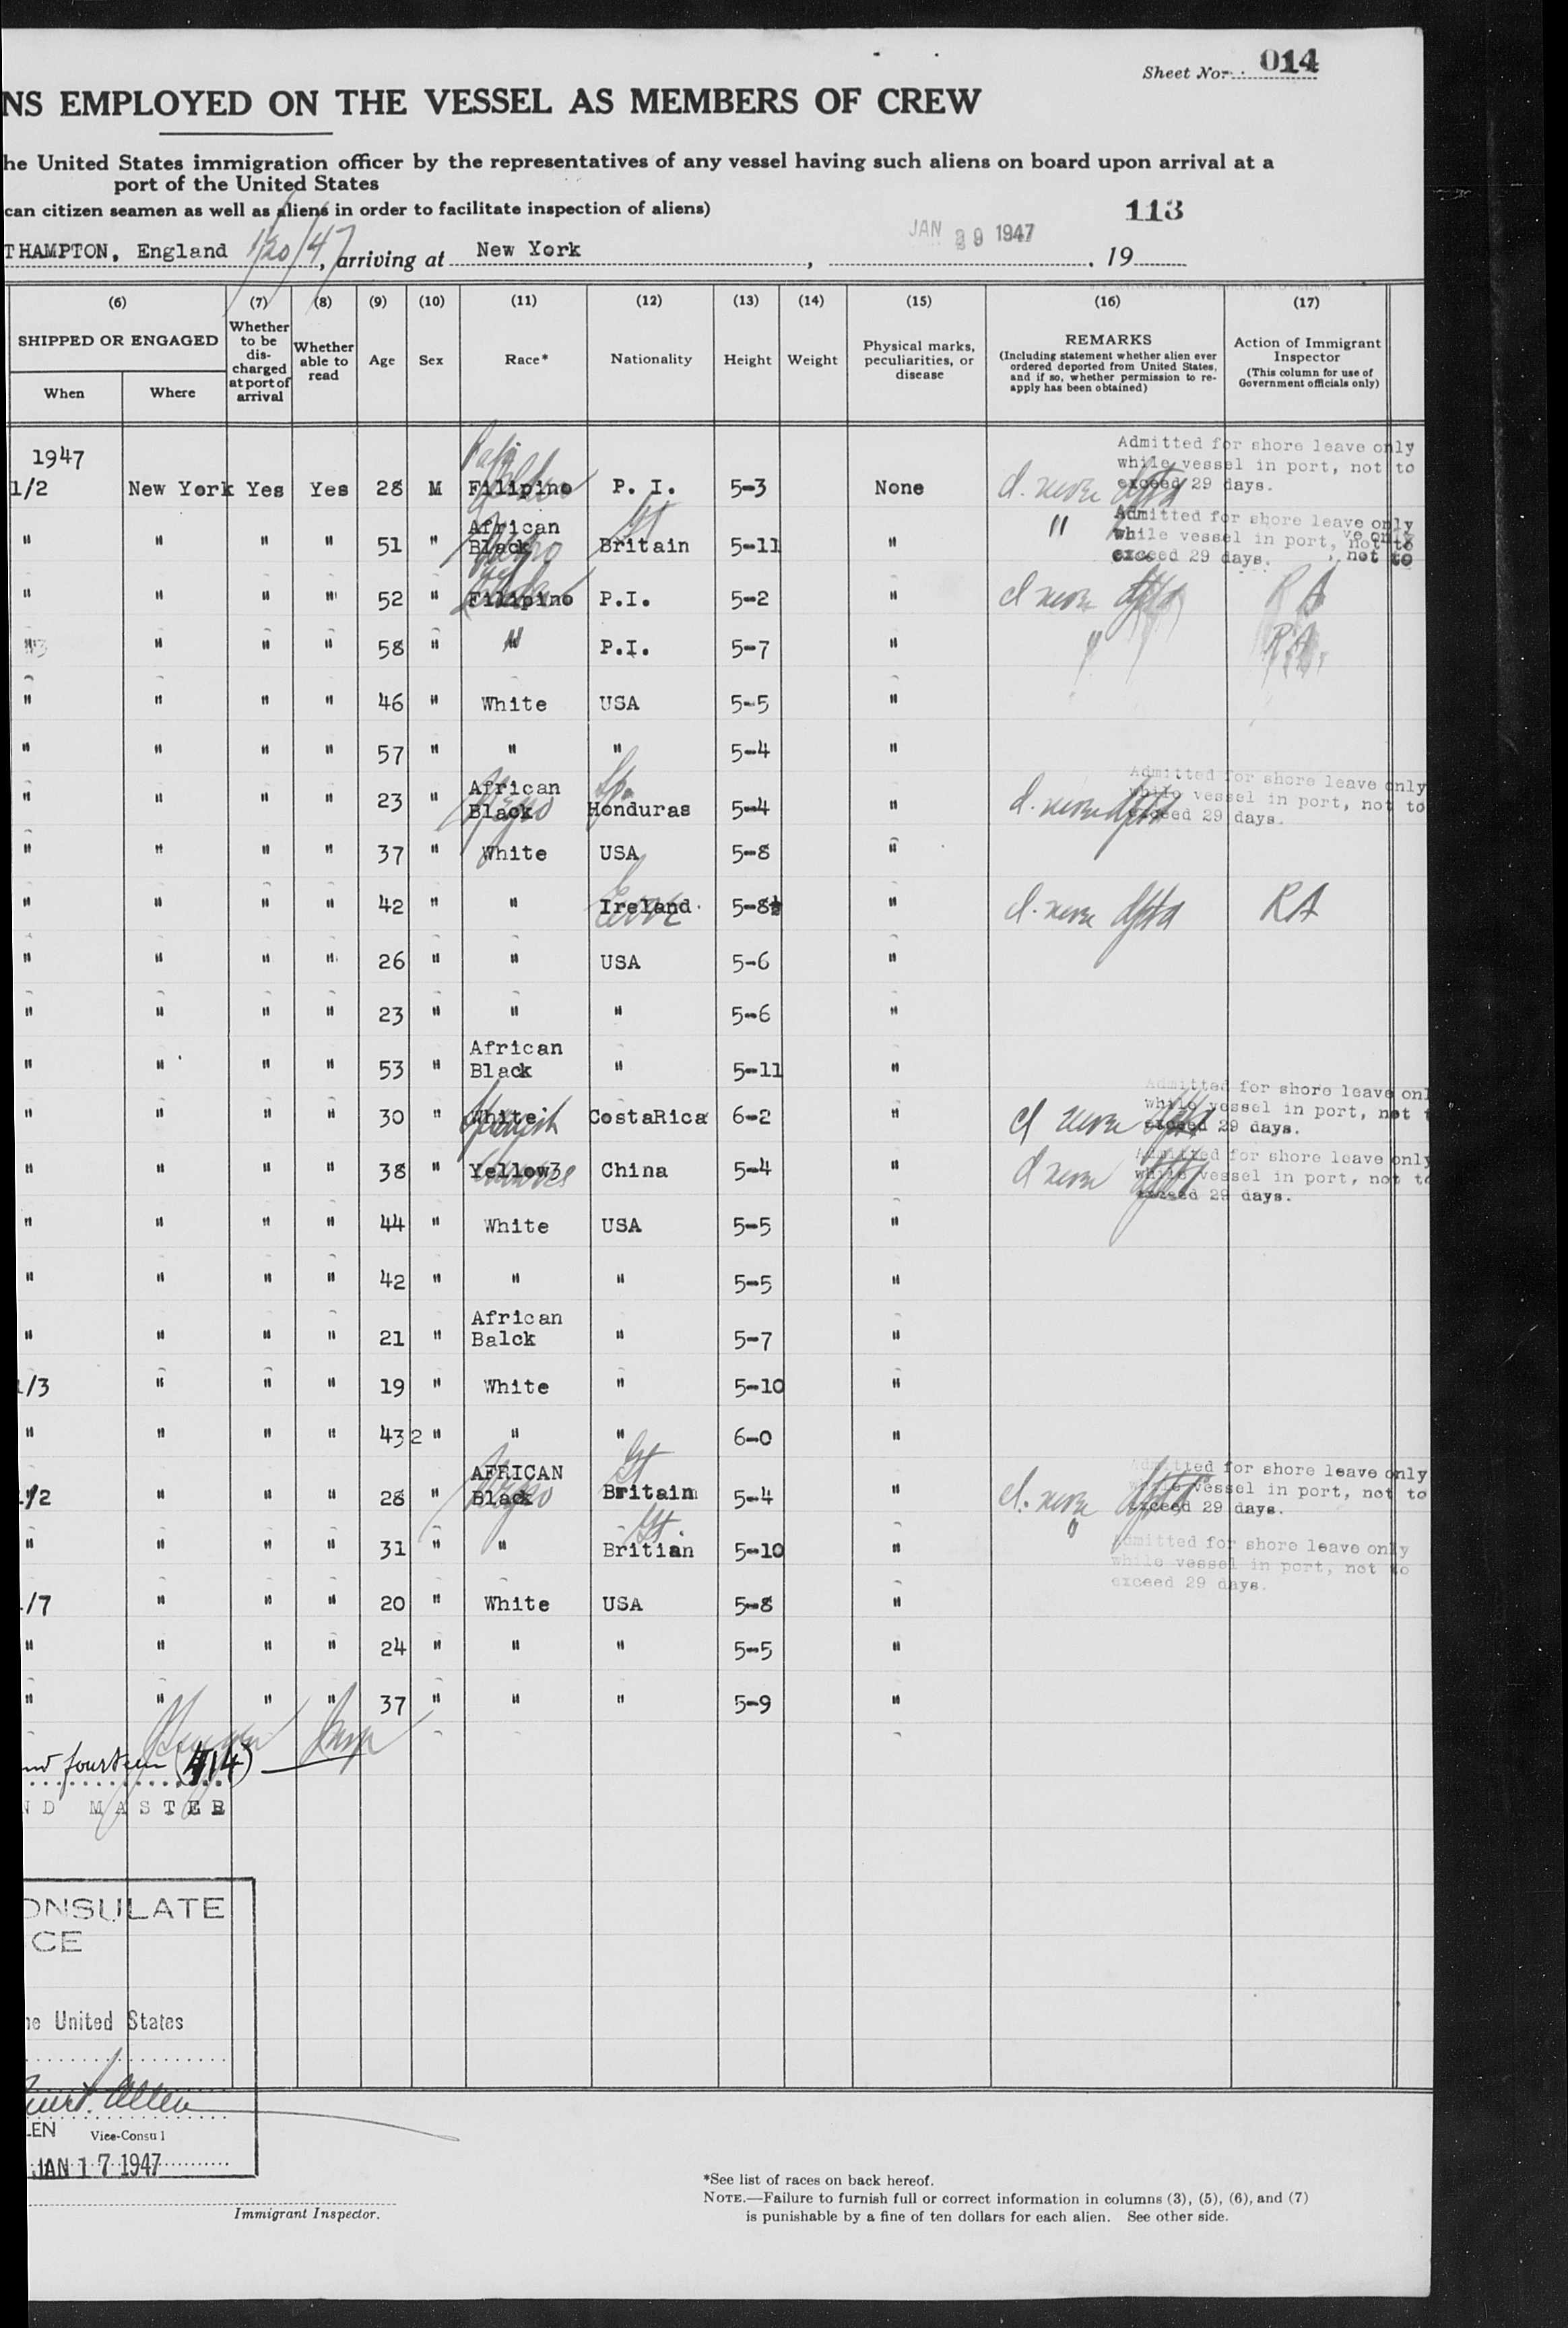 Sheet No. 014
NS EMPLOYED ON THE VESSEL AS MEMBERS OF CREW
he United States immigration officer by the representatives of any vessel having such aliens on board upon arrival at a
port of the United States
can citizen seamen as well as aliens in order to facilitate inspection of aliens)
113
JAN 29 1947
THAMPTON, England 1/20/47, arriving at New York , . 19
(6) (7) (8) (9) (10) (11) (12) (13) (14) (15) (16) (17)
SHIPPED OR ENGAGED
When Where
Whether to be dis- charged at port of arrival
Whether able to read
Age Sex Race* Nationality Height Weight
Physical marks, peculiarities, or disease
REMARKS
(Including statement whether alien ever ordered deported from United States, and if so, whether permission to re- apply has been obtained)
Action of Immigrant Inspector
(This column for use of Government officials only)
1947
1/2 New York Yes Yes 28 M Filipino P. I. 5-3 None
Admitted for shore leave only
while vessel in port, not to
exceed 29 days.
" " " " 51 " African Black Negro Gt Britain 5-11 " "
Admitted for shore leave only
while vessel in port, not to
exceed 29 days.
" " " " 52 " Filipino P.I. 5-2 " RA
" " " " 58 " " P.I. 5-7 " " RA
" " " " 46 " White USA 5-5 "
" " " " 57 " " " 5-4 "
" " " " 23 " African Black Negro Sp. Honduras 5-4 "
Admitted for shore leave only
while vessel in port, not to
exceed 29 days.
" " " " 37 " White USA 5-8 "
" " " " 42 " " Ireland 5-8½ " RA
" " " " 26 " " USA 5-6 "
" " " " 23 " " " 5-6 "
" " " " 53 " African Black " 5-11 "
" " " " 30 " White Spanish CostaRica 6-2 "
Admitted for shore leave onl
while vessel in port, not t
exceed 29 days.
" " " " 38 " Yellow Chinese China 5-4 "
Admitted for shore leave only
while vessel in port, not to
exceed 29 days.
" " " " 44 " White USA 5-5 "
" " " " 42 " " " 5-5 "
" " " " 21 " African Balck " 5-7 "
1/3 " " " 19 " White " 5-10 "
" " " " 43 2 " " " 6-0 "
1/2 " " " 28 " AFRICAN Black Negro Gt Britain 5-4 "
Admitted for shore leave only
while vessel in port, not to
exceed 29 days.
" " " " 31 " " Gt. Britian 5-10 " "
Admitted for shore leave only
while vessel in port, not to
exceed 29 days.
/7 " " " 20 " White USA 5-8 "
" " " " 24 " " " 5-5 "
" " " " 37 " " " 5-9 "
nd fourteen (414)
ND MASTER
ONSULATE
ICE
he United States
Allen
LEN Vice-Consul
JAN 17 1947
Immigrant Inspector.
*See list of races on back hereof.
NOTE.—Failure to furnish full or correct information in columns (3), (5), (6), and (7)
is punishable by a fine of ten dollars for each alien. See other side.